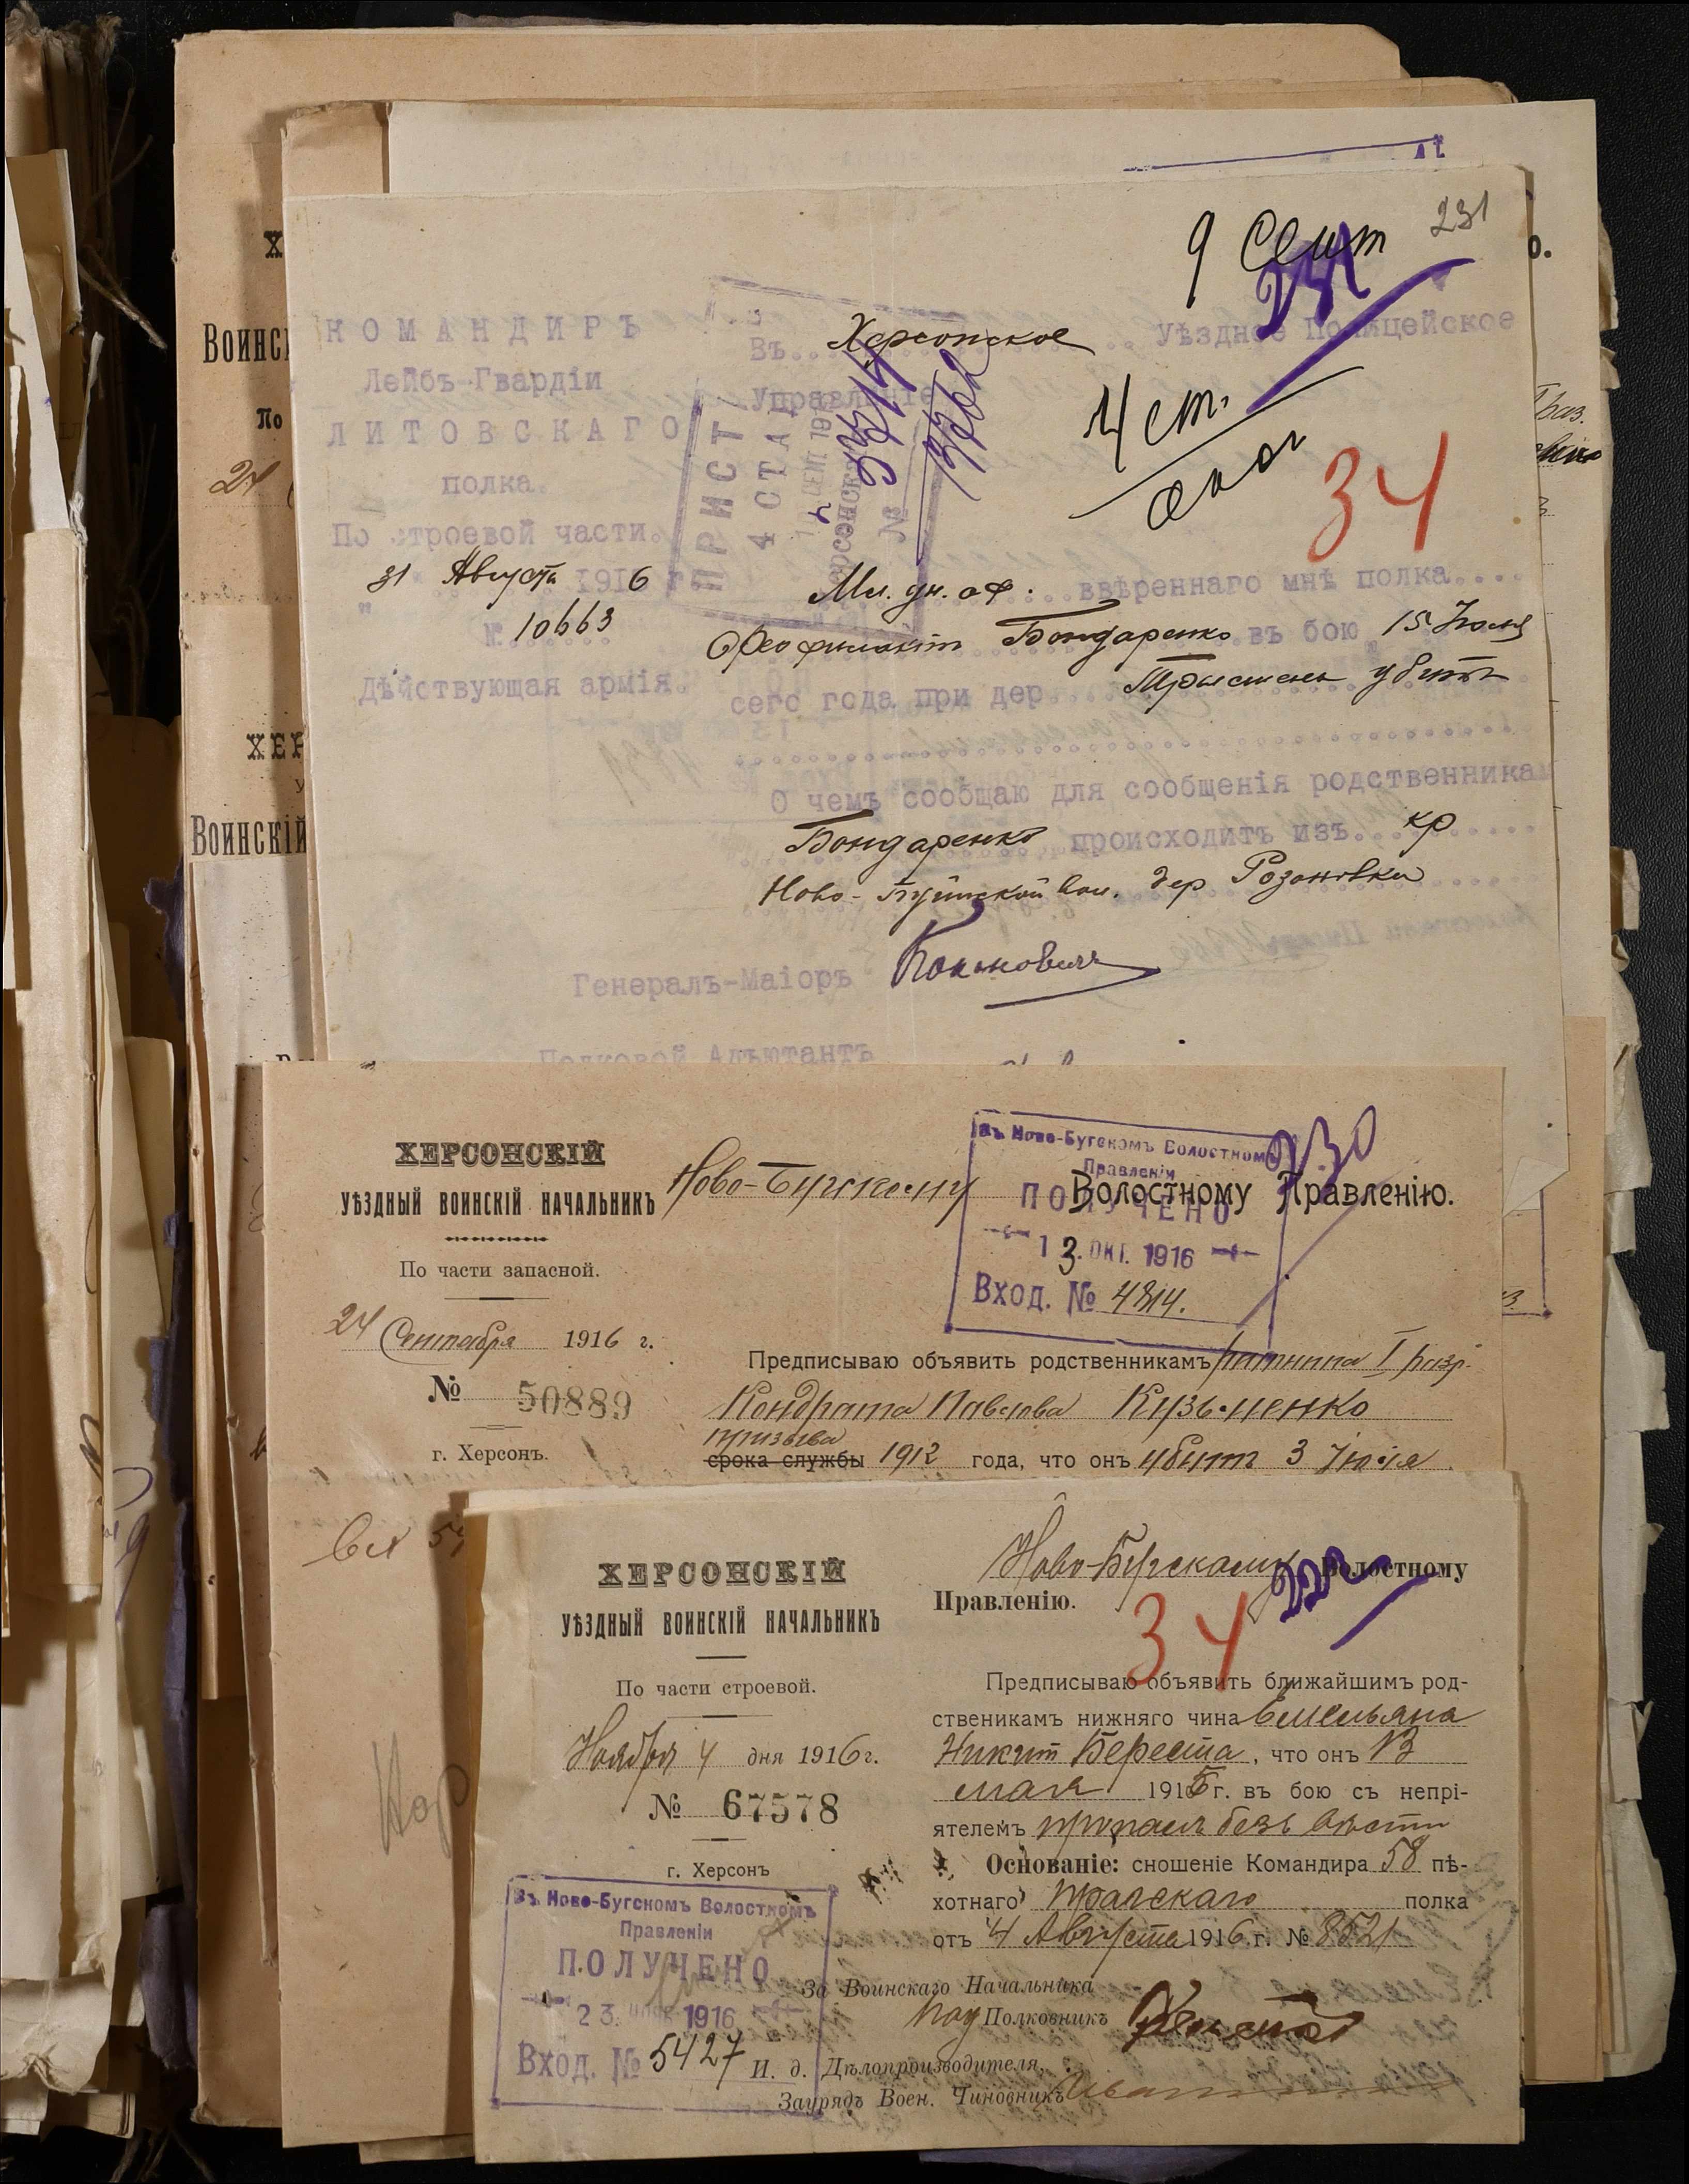 Х
Воинс
По
24
ХЕР
У
Воинскій
9 Сент
231
231
КОМАНДИРЪ
Лейбъ-Гвардіи
ЛИТОВСКАГО
полка.
По строевой части.
31 Августа 1916 г.
№ 10663
Дѣйствующая армія.
Въ Херсонское Уѣздное Полицейское
Управленіе
ПРИСТ
4 СТА
СЕНТ 191
№
4 ст.
34
Мл. ун. оф. ввѣреннаго мнѣ полка
Феофилактъ Бондаренко въ бою 15 Іюля
сего года при дер. Трыстень убитъ
О чемъ сообщаю для сообщенія родственникам
Бондаренко происходитъ изъ кр
Ново-Бугской вол. дер Розановки
Генералъ-Маіоръ
Полковой Адъютантъ
ХЕРСОНСКІЙ
УѢЗДНЫЙ ВОИНСКІЙ НАЧАЛЬНИКЪ
По части запасной.
24 Сентября 1916 г.
№ 50889
г. Херсонъ.
230
Ново-Бугскому Волостному Правленію.
Въ Ново-Бугскомъ Волостномъ
Правленіи
ПОЛУЧЕНО
13. ОКТ. 1916
Вход. № 4814.
Предписываю объявить родственникамъ ратника I разр.
Кондрата Павлова Кузьменко
призыва
срока службы 1912 года, что онъ убитъ 3 Іюля
Вх 54
ХЕРСОНСКІЙ
УѢЗДНЫЙ ВОИНСКІЙ НАЧАЛЬНИКЪ
По части строевой.
Ноября 4 дня 1916 г.
№ 67578
г. Херсонъ
Ново-Бугскому Волостному
Правленію.
34
Предписываю объявить ближайшимъ род-
ственикамъ нижняго чина Емельяна
Никит Береста, что онъ 13
мая 1915 г. въ бою съ непрі-
ятелемъ пропалъ безъ вѣсти
Основаніе: сношеніе Командира 58 пѣ-
хотнаго Прагскаго полка
отъ 4 Августа 1916 г. № 8521
Въ Ново-Бугскомъ Волостномъ
Правленіи
ПОЛУЧЕНО
23. НОЯБ 1916
Вход. № 5427
За Воинскаго Начальника
Под Полковникъ
И. д. Дѣлопроизводителя,
Заурядъ Воен. Чиновникъ